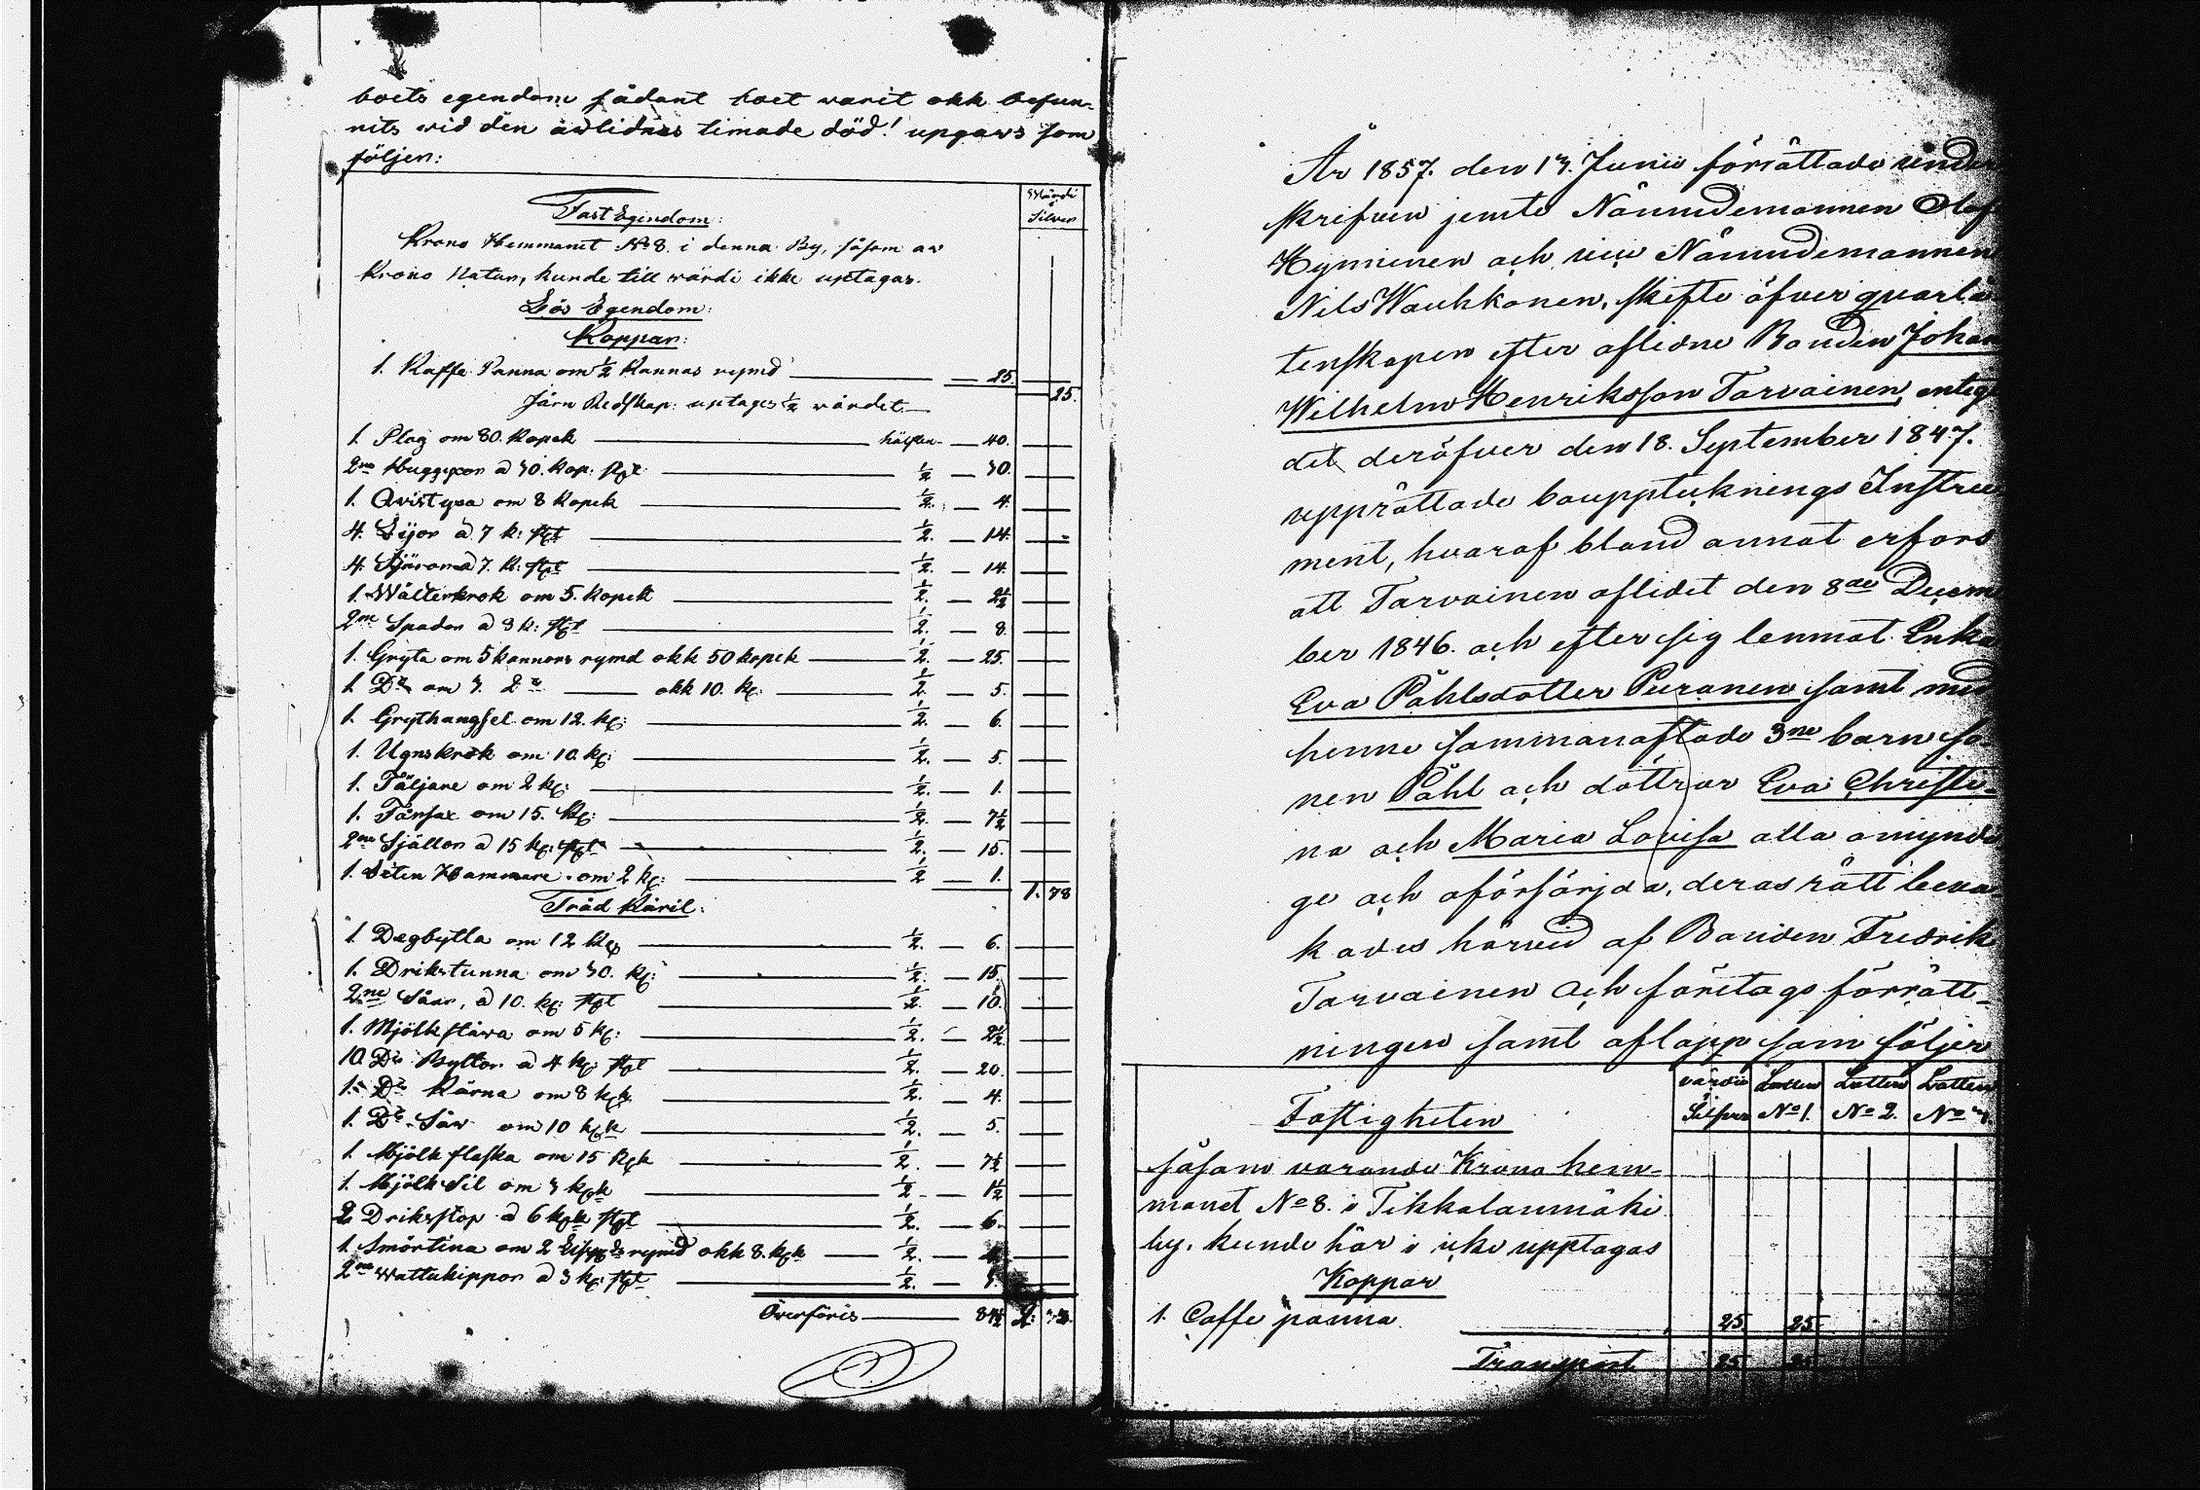 boets egendom sådant boet varit okk befun-
nits vid den awlidnes timade död! upgaws som
följer:
Wärde
Silver
Fast Egendom:
Krono Hemmanet No 8. i denna By, såsom aw
Krono Natur, kunde till wärde ikke uptagas.
Lös Egendom:
Koppar:
1. Kaffe Panna om 1/2 Kannas rymd 25.
25.
Järn Redskap: uptages 1/2 värdet
1. Plog om 80. Kopek hälften 40.
2ne Huggyxor a 30. Kop: st 1/2 30.
1. Qvistyxa om 8 Kopek 1/2 4.
4. Lijor a 7 k: st 1/2 14.
4. Skäror a 7. k: st 1/2 14.
1. Wälterkrok om 5. Kopek 1/2 2 1/2
2ne Spador a 8 k: st 1/2 8.
1. Gryta om 5 kannors rymd okk 50 kopek 1/2 25.
1. Do om 3. Do okk 10. k: 1/2 5.
1. Grythangsel om 12. k: 1/2 6.
1. Ugnskrok om 10. k: 1/2 5.
1. Täljare om 2 k: 1/2 1.
1. Fårsax om 15. k: 1/2 7 1/2
2ne Själlor a 15 k: st 1/2 15.
1. Liten Hammare om 2 k: 1/2 1.
1. 78
Träd Käril:
1. Degbytta om 12 k: 1/2 6.
1. Drikstunna om 30. k: 1/2 15.
2ne Såar, a 10. k: st 1/2 10.
1. Mjölkstäwa om 5 k: 1/2 2 1/2
10. Do Byttor a 4 k: st 1/2 20.
1. Do Kärna om 8 kpk 1/2 4.
1. Do Såw om 10 kpk 1/2 5.
1. Mjölk flaska om 15 kpk 1/2 7 1/2
1. Mjölk Sil om 3 kpk 1/2 1 1/2
2 Driksstop a 6 kpk st 1/2 6.
1. Smörtina om 2 rymd okk 8. kpk 1/2 4.
2ne Wattukippor a 3 k: st 1/2 3.
Överföris 84 1/2 2.
År 1857. den 13. Junii förrättade under
skrifven jemte Nämndemannen Olof
Hynninen och vice Nämndemannen
Nils Wauhkonen, skifte öfver qvarlå
tenskapen efter aflidne Bonden Johan
Wilhelm Henriksson Tarvainen, enligt
det deröfver den 18. September 1847.
upprättade bouppteknings Instru
ment, hvaraf bland annat erfors
att Tarvainen aflidet den 8de Decem
ber 1846. och efter sig lemnat Enka
Eva Påhlsdotter Puranen samt med
henne sammanaflade 3ne barn so-
nen Påhl och döttrar Eva Christi-
na och Maria Lovisa alla omyndi
ge och oförsörjda, deras rätt beva-
kades härvid af Bonden Fredrik
Tarvainen Och företogs förrätt-
ningen samt aflopp som följer
värde Silfver Lotten No 1. Lotten No 2. Lotten No 3.
Fastigheten
såsom varande Krono hem-
manet No 8. i Tikkalanmäki
by, kunde här i icke upptagas
Koppar
1. Caffe panna 25. 25.
Transport 25 25